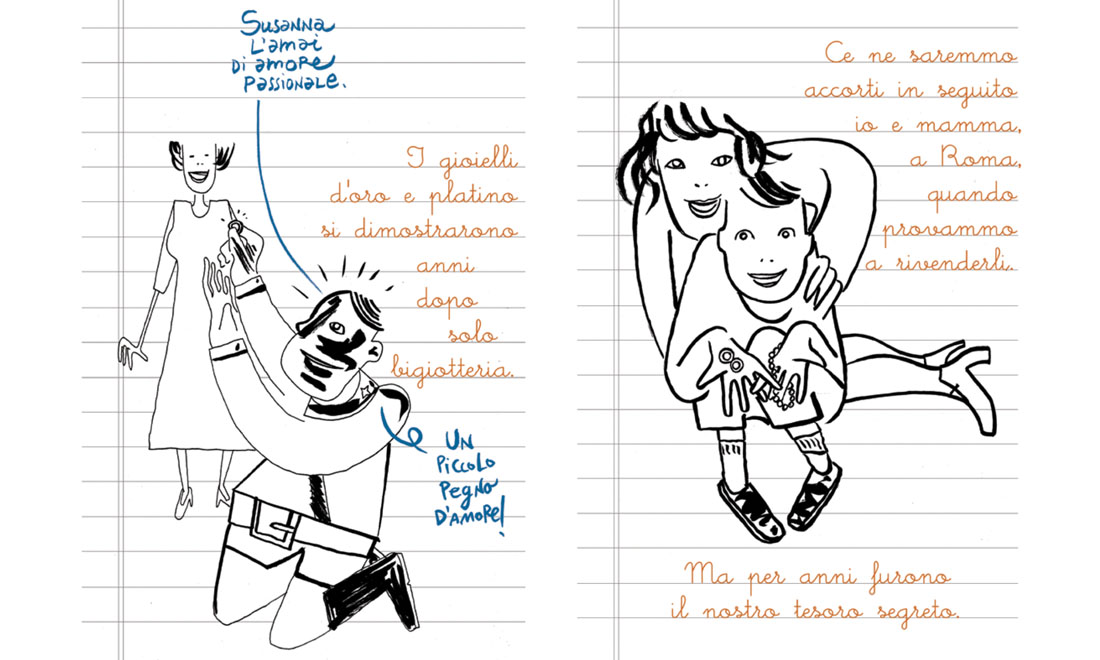 Susanna
L'amai
Di amore
Passionale.
I gioielli
d'oro e platino
si dimostrarono
anni
dopo
solo
bigiotteria.
Un
Piccolo
Pegno
D'amore!
Ce ne saremmo
accorti in seguito
io e mamma,
a Roma,
quando
provammo
a rivenderli.
Ma per anni furono
il nostro tesoro segreto.